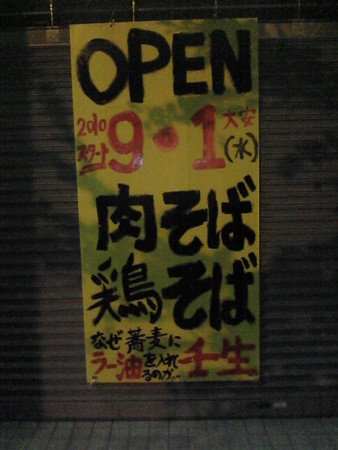 OPEN
2010 スタート 9・1 大安 (水)
肉そば
鶏そば
なぜ蕎麦に
ラー油を入れるのか… 壬生